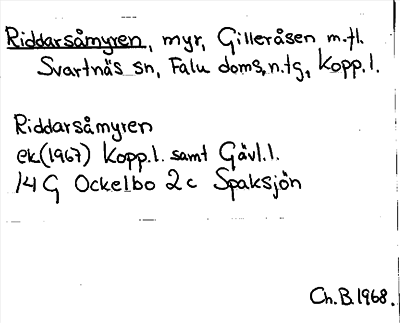 Riddarsåmyren, myr, Gilleråsen m.fl.
Svartnäs sn, Falu doms.n.tg, Kopp.l.
Riddarsåmyren
ek(1967) Kopp.l. samt Gävl.l.
14 G Ockelbo 2c Spaksjön
Ch.B.1968.